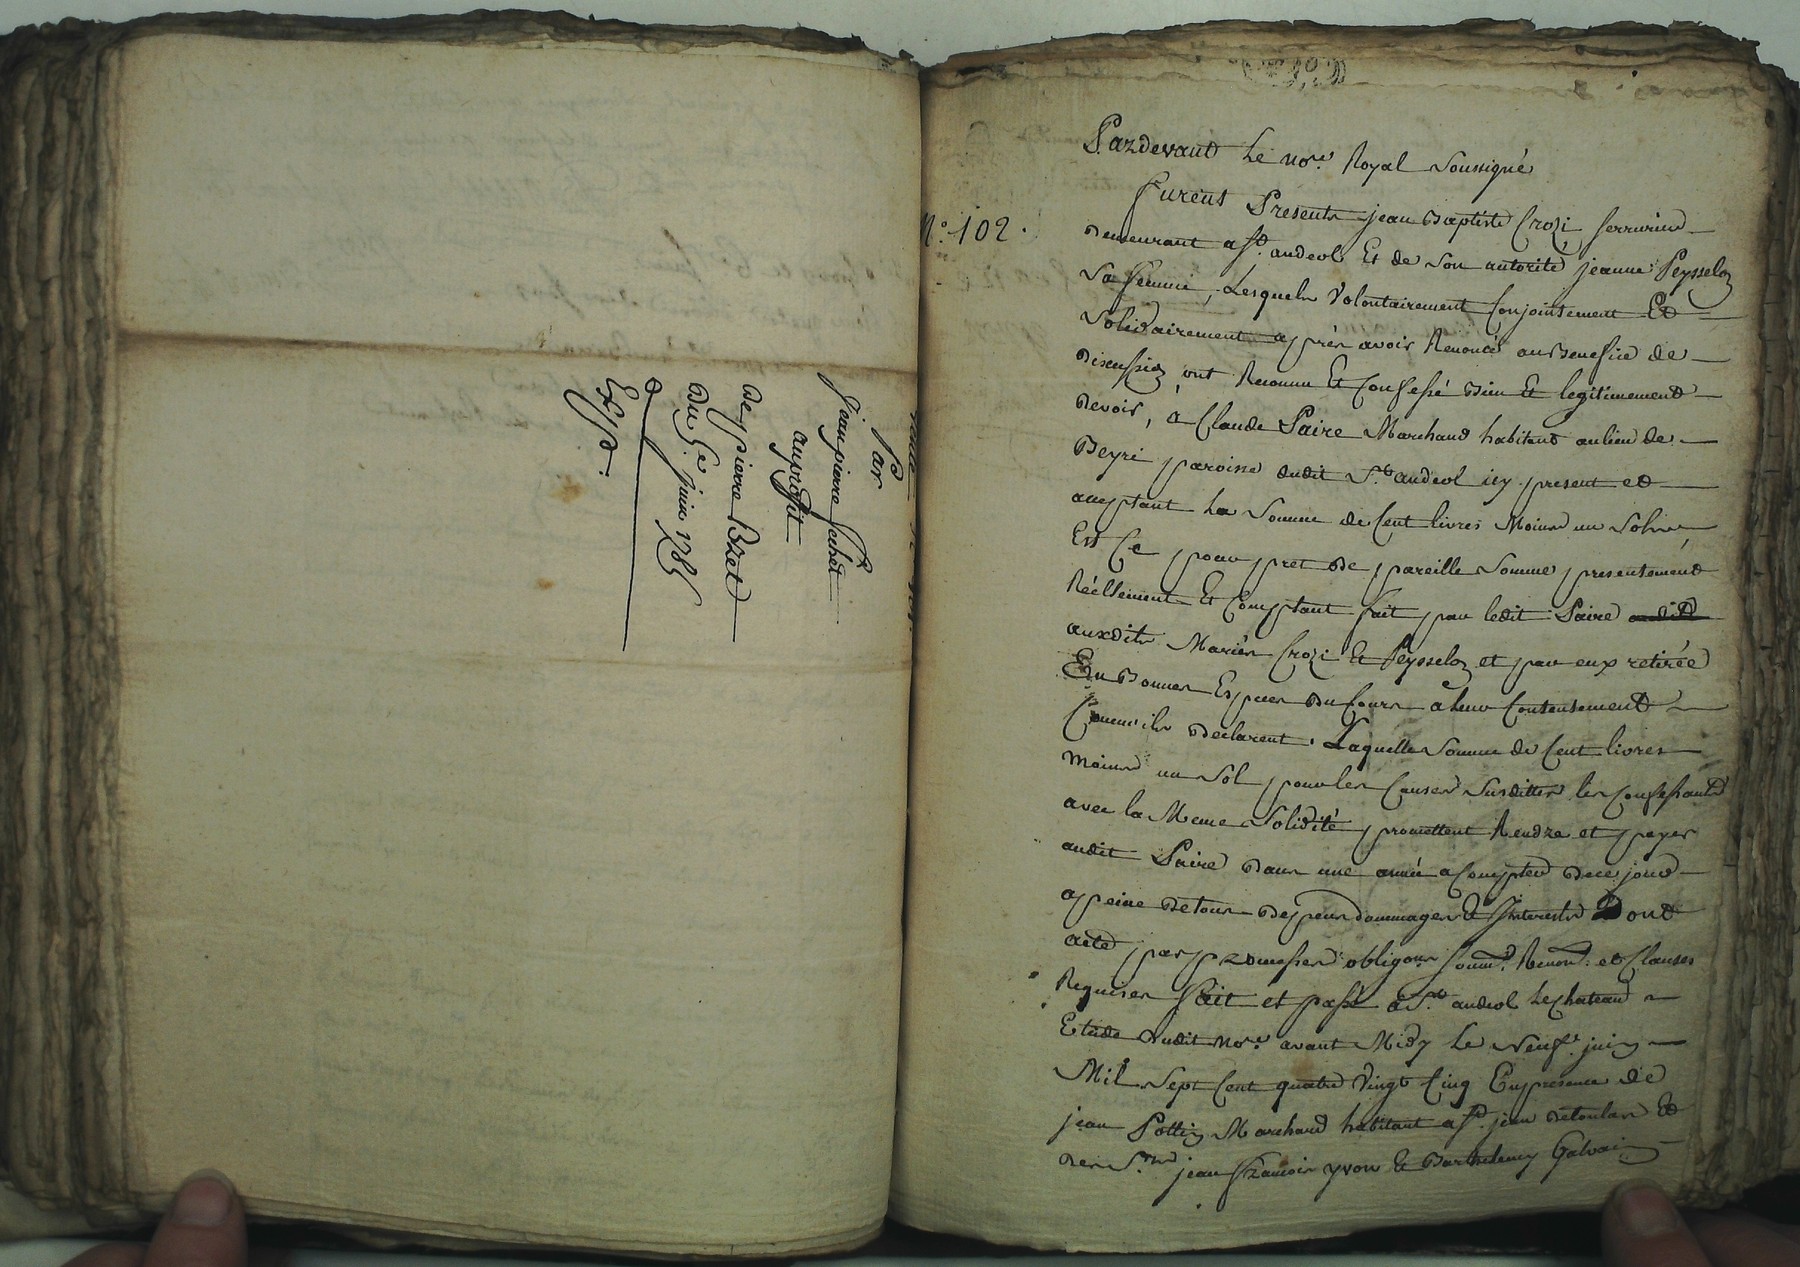 Par
jean pierre Jachet
auprofit
de pierre Bret
Du 5e. juin 1785
Exp.
N.° 102.
Pardevant Le nore. Royal Soussigné
furent Presents jean Baptiste Crozi serrurier
demeurant a St. andeol Et de son autorité jeanne Peysselon
Sa femme, Lesquels Volontairement Conjointement Et
Solidairement apprés avoir Renoncé au Benefice de
discussion ont Reconnu Et Confessé Bien Et legitimement
devoir, à Claude Paire Marchand habitant au lieu de
Peyre paroisse dudit St. andeol icy present et
acceptant La Somme de Cent livres Moins un Sol
Et Ce pour pret de pareille Somme presentement
Réellement Et Comptant fait par ledit Paire audit
auxdits Mariés Crozi Et Peysselon et par eux retirée
En Bonnes Espèces du Cours a leur Contentement
Comme ils declarent. Laquelle Somme de Cent livres
Moins un Sol pour les Causes Susdittes les Confessants
avec la Meme Solidité promettent Rendre et payer
audit Paire dans une année a Compter de ce jour
appeine de tous depens dommages Et Interests Dont
acte par promesses obligons soum. Renon. et Clauses
Requises fait et passé a St. andeol Le Chateau
Etude dudit Nore. avant Midy Le Neufe. juin
Mil Sept Cent quatre Vingt Cinq En presence de
jean Pottin Marchand habitant a St. jean de toulas Et
des Srs. jean francois yvon Et Barthelemy Galvain